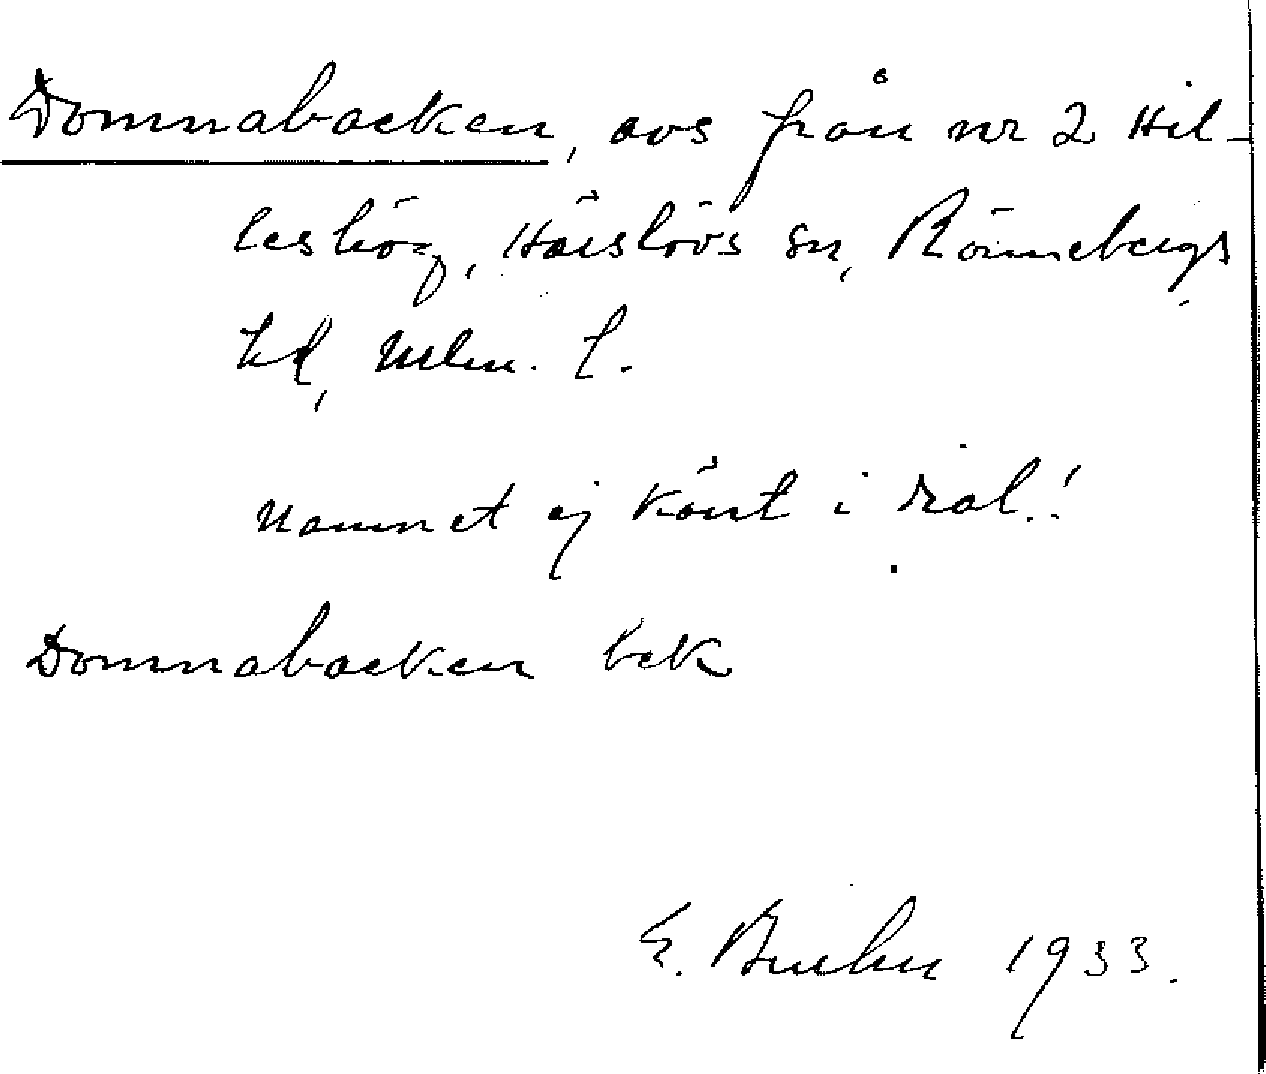 Domnabacken, avs från nr 2 Hil-
leshög, Härslövs sn, Rönnebergs
hd, Mlm. l.
Namnet ej känt i dial.!
Domnabacken bck
E. 1933.